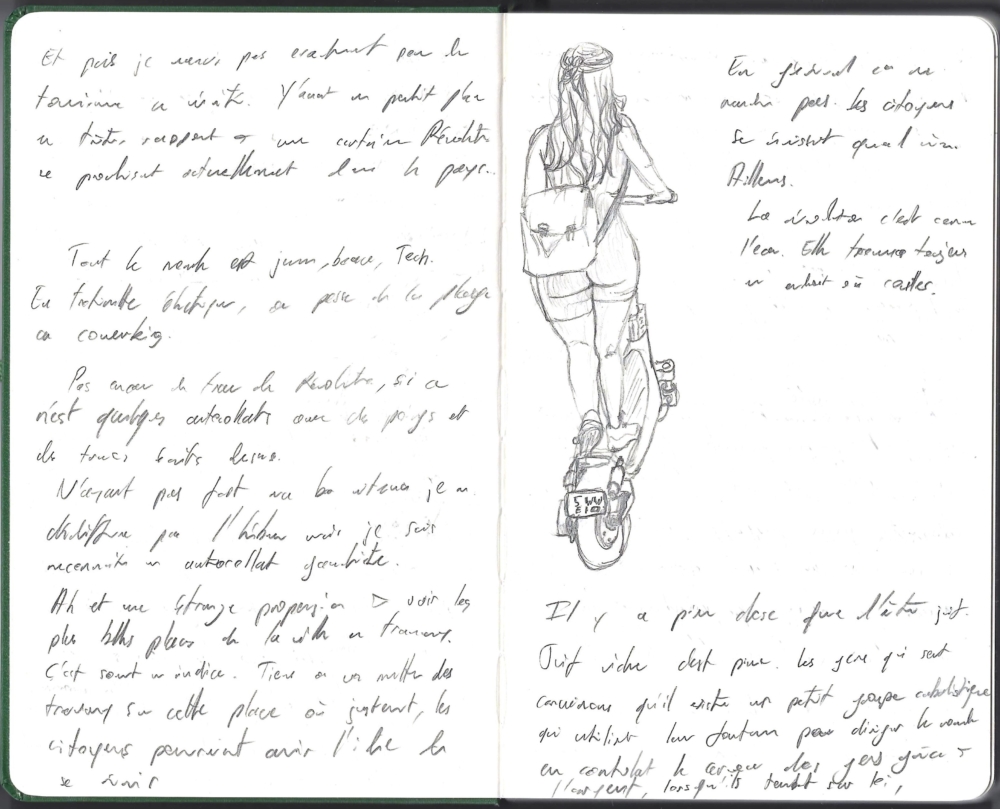 Et puis je pas exactement pour le
tourisme en vérité. Y'avait un petit plan
en rapport à une certaine Révolution
se produisant actuellement dans le pays..
Tout le monde est jeune, beau, Tech.
En trottinette électrique, on passe de la plage
au coworking.
Pas encore de trace de Révolution, si ce
n'est quelques autocollants aux du pays et
des trucs écrits dessus.
N'ayant pas fait ma je ne
déchiffre pas l'hébreu mais je sais
reconnaître un autocollant gauchiste.
Ah et une étrange propension à voir les
plus belles places de la ville en travaux.
C'est souvent un indice. Tiens on va mettre des
travaux sur cette place où justement, les
citoyens pourraient avoir l'idée de
se réunir
En général ça ne
marche pas. Les citoyens
se réunissent quand même.
Ailleurs.
La révolution c'est comme
l'eau. Elle trouve toujours
un endroit où couler.
Il y a pire chose que d'être juif.
Juif riche c'est pire. Les gens qui sont
convaincus qu'il existe un petit groupe cabalistique
qui utilise leur fortune pour diriger le monde
en contrôlant le cerveau des gens grâce à
l'argent, lorsqu'ils tombent sur toi,